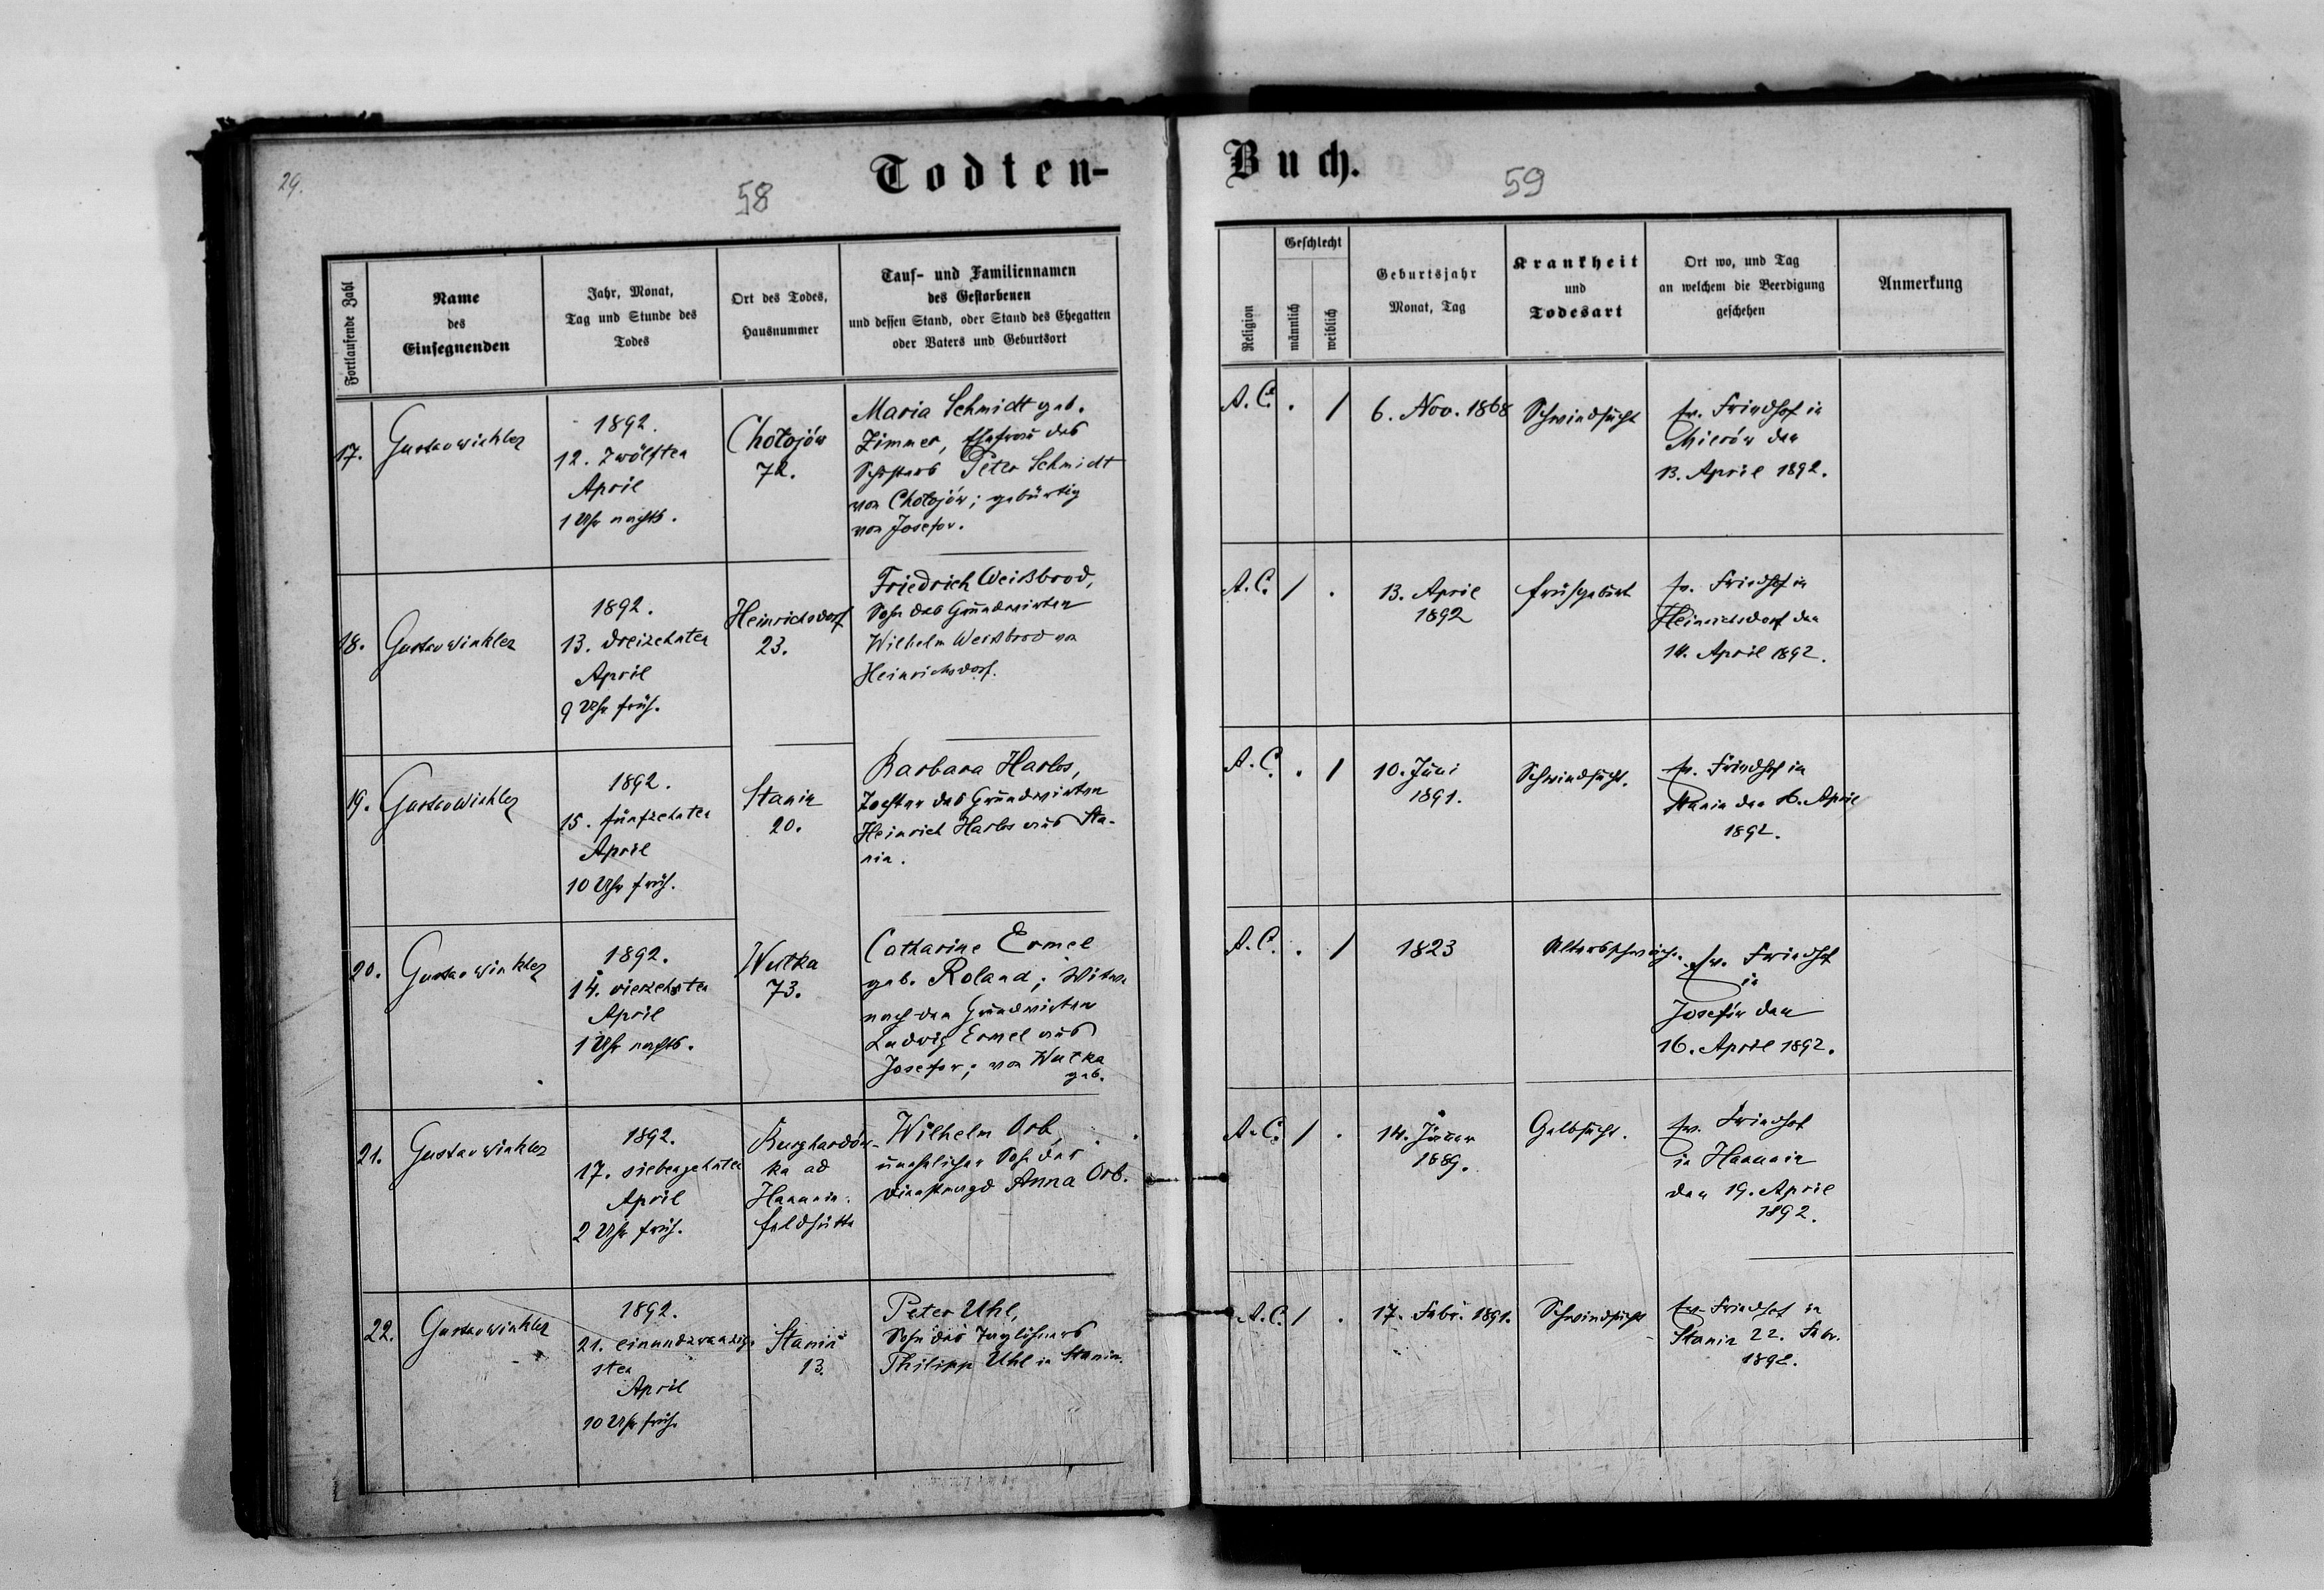 29.
58
Todten-
Fortlaufende Zahl
Name
des
Einsegnenden
Jahr, Monat,
Tag und Stunde des
Todes
Ort des Todes,
Hausnummer
Tauf- und Familiennamen
des Gestorbenen
und dessen Stand, oder Stand des Ehegatten
oder Vaters und Geburtsort
17.
Gustav Winkler
1892.
12. Zwölften
April
1 Uhr nachts.
Chołojów
72.
Maria Schmidt geb.
Zimmer, Ehefrau des
Peter Schmidt
von Chołojów; gebürtig
von Josefow.
18.
Gustav Winkler
1892.
13. dreizehnten
April
9 Uhr früh.
Heinrichsdorf
23.
Friedrich Weißbrod,
Sohn des Grundwirten
Wilhelm Weißbrod von
Heinrichsdorf.
19.
Gustav Winkler
1892.
15. fünfzehnten
April
10 Uhr früh.
Stanin
20.
Barbara Harlos,
Tochter des Grundwirten
Heinrich Harlos aus Sta-
nin.
20.
Gustav Winkler
1892.
14. vierzehnten
April
1 Uhr nachts.
Wutka
73.
Catharine Ermel
geb. Roland; Witwe
nach dem Grundwirten
Ludwig Ermel aus
Josefow; von Wutka
geb.
21.
Gustav Winkler
1892.
17. siebenzehnten
April
2 Uhr früh.
Burghardów-
ka ad
Hanunin.
Feldhütte
Wilhelm Orb,
unehelicher Sohn der
Dienstmagd Anna Orb.
22.
Gustav Winkler
1892.
21. einundzwanzig-
sten
April
10 Uhr früh.
Stanin
13.
Peter Uhl,
Sohn des Taglöhners
Philipp Uhl in Stanin.
Buch.
59
Religion
Geschlecht
männlich
weiblich
Geburtsjahr
Monat, Tag
Krankheit
und
Todesart
Ort wo, und Tag
an welchem die Beerdigung
geschehen
Anmerkung
A. C. . /
6. Nov. 1868
Schwindsucht
ev. Friedhof in
Mierów den
13. April 1892.
A. C. / .
13. April
1892
Frühgeburt
ev. Friedhof in
Heinrichsdorf den
14. April 1892.
A. C. . /
10. Juni
1891.
Schwindsucht.
ev. Friedhof in
Stanin den 16. April
1892.
A. C. . /
1823
Altersschwäche.
ev. Friedhof
in
Josefów den
16. April 1892.
A. C. / .
14. Jänner
1889.
Gelbsucht.
ev. Friedhof
in Hanunin
den 19. April
1892.
A. C. / .
17. Febr. 1891.
Schwindsucht
ev. Friedhof in
Stanin 22. Febr.
1892.